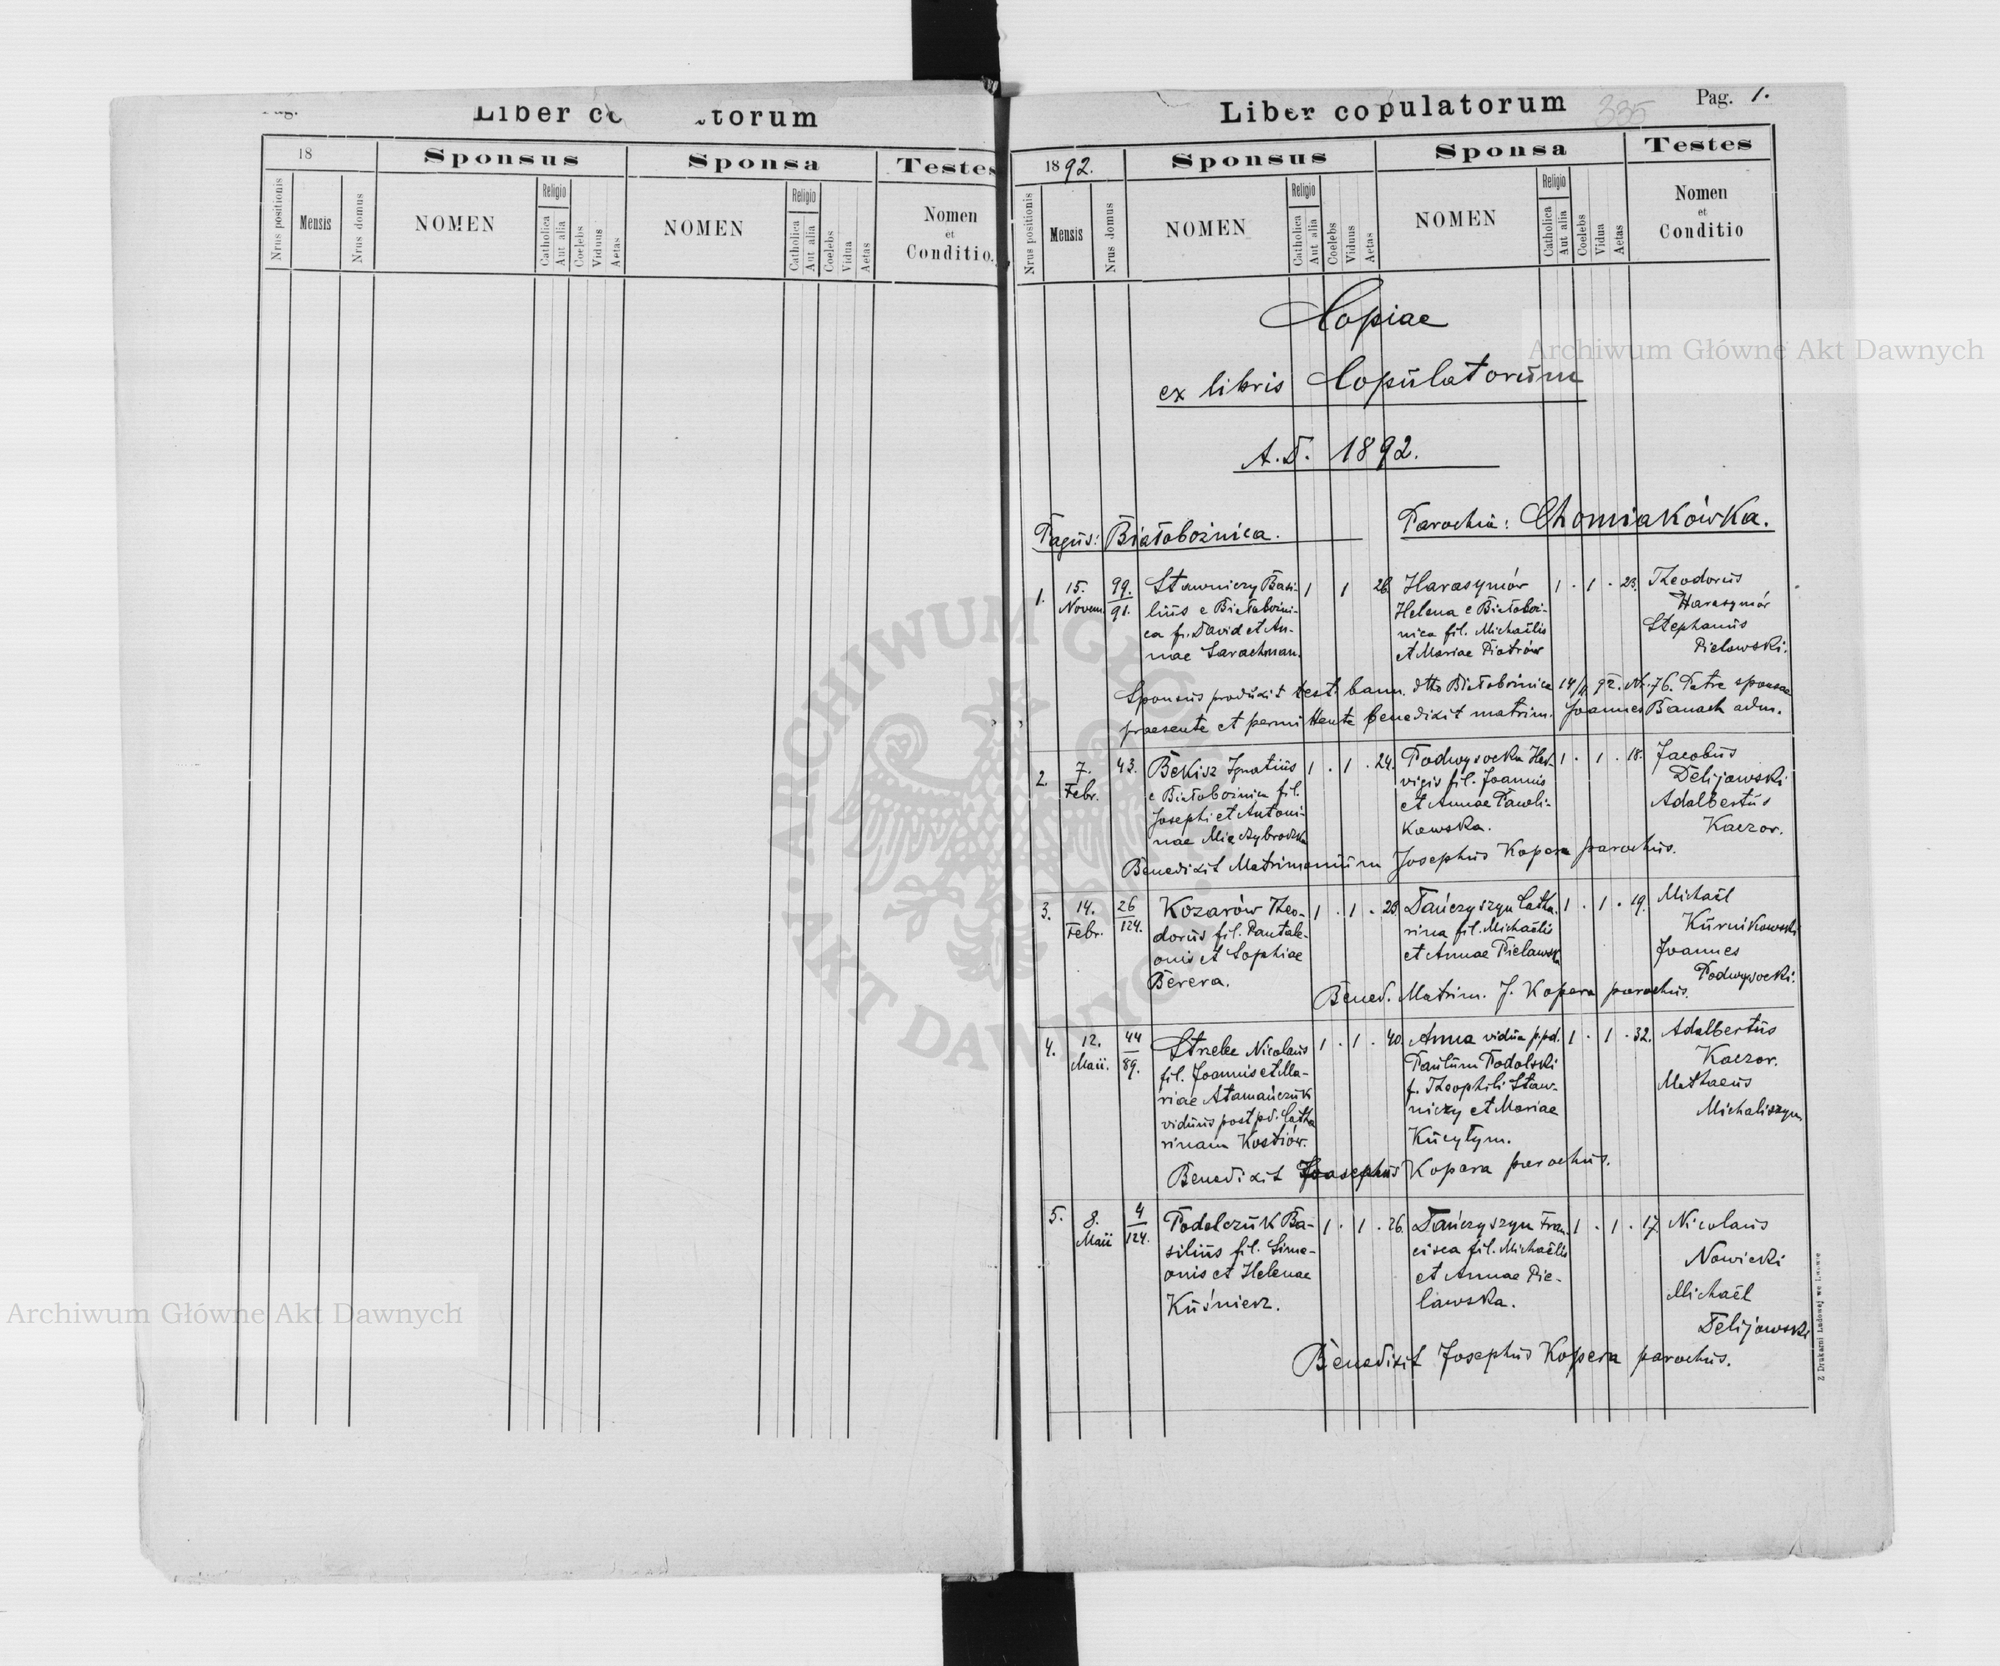 Liber co
torum
18
Sponsus
Sponsa
Testes
Nrus positionis
Mensis
Nrus domus
NOMEN
Religio
Catholica
Aut alia
Coelebs
Viduus
Aetas
NOMEN
Religio
Catholica
Aut alia
Coelebs
Vidua
Aetas
Nomen
et
Conditio.
Liber copulatorum
335
Pag. 1.
1892.
Sponsus
Sponsa
Testes
Nrus positionis
Mensis
Nrus domus
NOMEN
Religio
Catholica
Aut alia
Coelebs
Viduus
Aetas
NOMEN
Religio
Catholica
Aut alia
Coelebs
Vidua
Aetas
Nomen
et
Conditio
Copiae
ex libris Copulatorum
A.D. 1892.
Pagus: Białobożnica.
Parochia: Chomiakówka.
1.
15.
Novem.
99.
91.
Stawniczy Basi-
lius e Białobożni-
ca f. David et An-
nae Sarachman.
1 1 26.
Harasymów
Helena e Białoboż-
nica fil. Michaëlis
et Mariae Piotrów
1 . 1 . 23.
Theodorus
Harasymów
Stephanus
Pielawski.
Sponsus produxit test. bann. dtto Białobożnica 14/11 92. Nr. 76. Patre sponsae
praesente et permittente benedixit matrim. Joannes Banach adm.
2.
7.
Febr.
43.
Bekisz Ignatius
e Białobożnica fil.
Josephi et Antoni-
nae Międzybrodzka
1 . 1 . 24.
Podwysocka Hed-
vigis fil. Joannis
et Annae Pawli-
kowska.
1 . 1 . 18.
Jacobus
Delijowski
Adalbertus
Kaczor.
Benedixit Matrimonium Josephus Kopera parochus.
3.
14.
Febr.
26
124.
Kozarów Theo-
dorus fil. Pantale-
onis et Sophiae
Berera.
1 . 1 . 23.
Dańczyszyn Catha-
rina fil. Michaëlis
et Annae Pielawska
1 . 1 . 19.
Michaël
Kurnikowski
Joannes
Podwysocki.
Bened. Matrim. J. Kopera parochus.
4.
12.
Maii.
44
89.
Nicolaus
fil. Joannis et Ma-
riae Atamańczuk
viduus post pd. Catha
rinam Kostiów.
1 . 1 . 40.
Anna vidua p. pd.
Paulum Podolski
f. Theophili Staw-
niczy et Mariae
Kucytym.
1 . 1 . 32.
Adalbertus
Kaczor.
Mathaeus
Michaliszyn
Benedixit Josephus Kopera parochus.
5.
8.
Maii
4
124.
Podolczuk Ba-
silius fil. Sime-
onis et Helenae
Kuśnierz.
1 . 1 . 26.
Dańczyszyn Fran-
cisca fil. Michaëlis
et Annae Pie-
lawska.
1 . 1 . 17.
Nicolaus
Nowicki
Michaël
Delijowski
Benedixit Josephus Kopera parochus.
Z Drukarni Ludowej we Lwowie
Archiwum Główne Akt Dawnych
Archiwum Główne Akt Dawnych
ARCHIWUM GŁÓWNE · AKT DAWNYCH ·